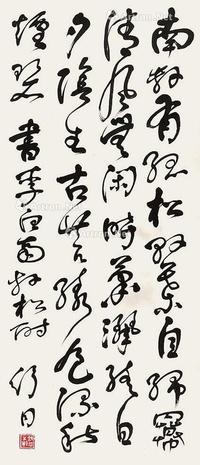 南轩有孤松柯叶自绵幂
清风无闲时潇洒终日
夕阴生古苔绿色染秋
烟碧 书李白南轩松诗 舒同